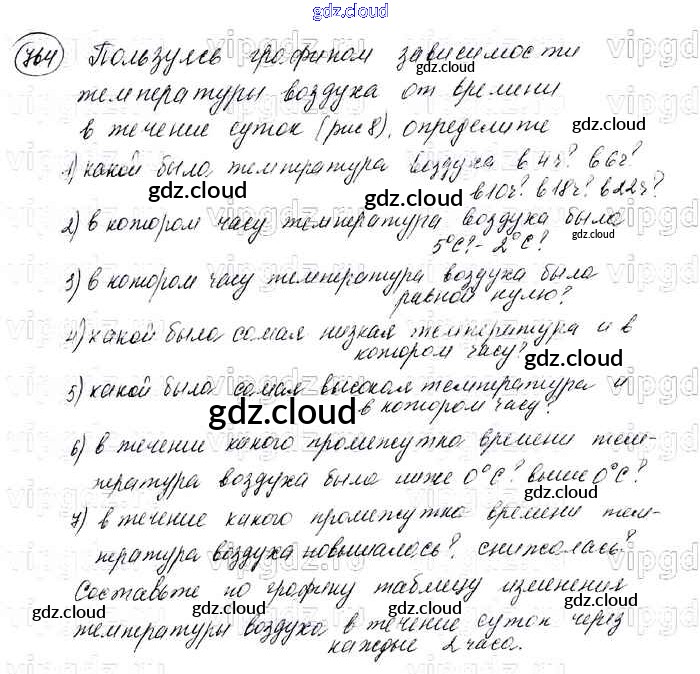 gdz.cloud
764 Пользуясь графиком зависимости
gdz.cloud
температуры воздуха от времени
в течение суток (рис 8), определите
gdz.cloud
1) какой была температура воздуха в 4ч? в 6ч?
gdz.cloud gdz.cloud
в 10ч? в 18ч? в 22ч?
2) в котором часу температура воздуха была
5°С? -2°С?
gdz.cloud
3) в котором часу температура воздуха была
равной нулю?
4) какой была самая низкая температура и в
котором часу?
gdz.cloud
5) какой была самая высокая температура и
в котором часу?
gdz.cloud
6) в течении какого промежутка времени тем-
пература воздуха была ниже 0°С? выше 0°С?
gdz.cloud
7) в течение какого промежутка времени тем-
пература воздуха повышалась? снижалась?
Составьте по графику таблицу изменения
gdz.cloud gdz.cloud gdz.cloud
температуры воздуха в течение суток через
каждые 2 часа.